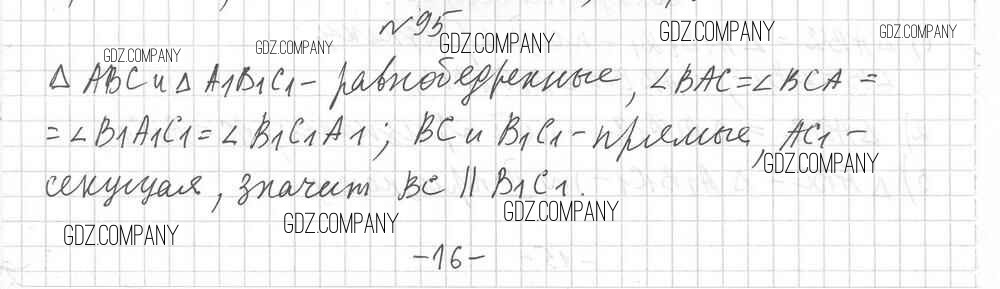 №95
GDZ.COMPANY
GDZ.COMPANY
GDZ.COMPANY
GDZ.COMPANY
GDZ.COMPANY
Δ ABC и Δ A1B1C1 - равнобедренные, ∠BAC = ∠BCA =
= ∠B1A1C1 = ∠B1C1A1; BC и B1C1 - прямые, AC1 -
GDZ.COMPANY
секущая, значит BC || B1C1.
GDZ.COMPANY
GDZ.COMPANY
GDZ.COMPANY
-16-